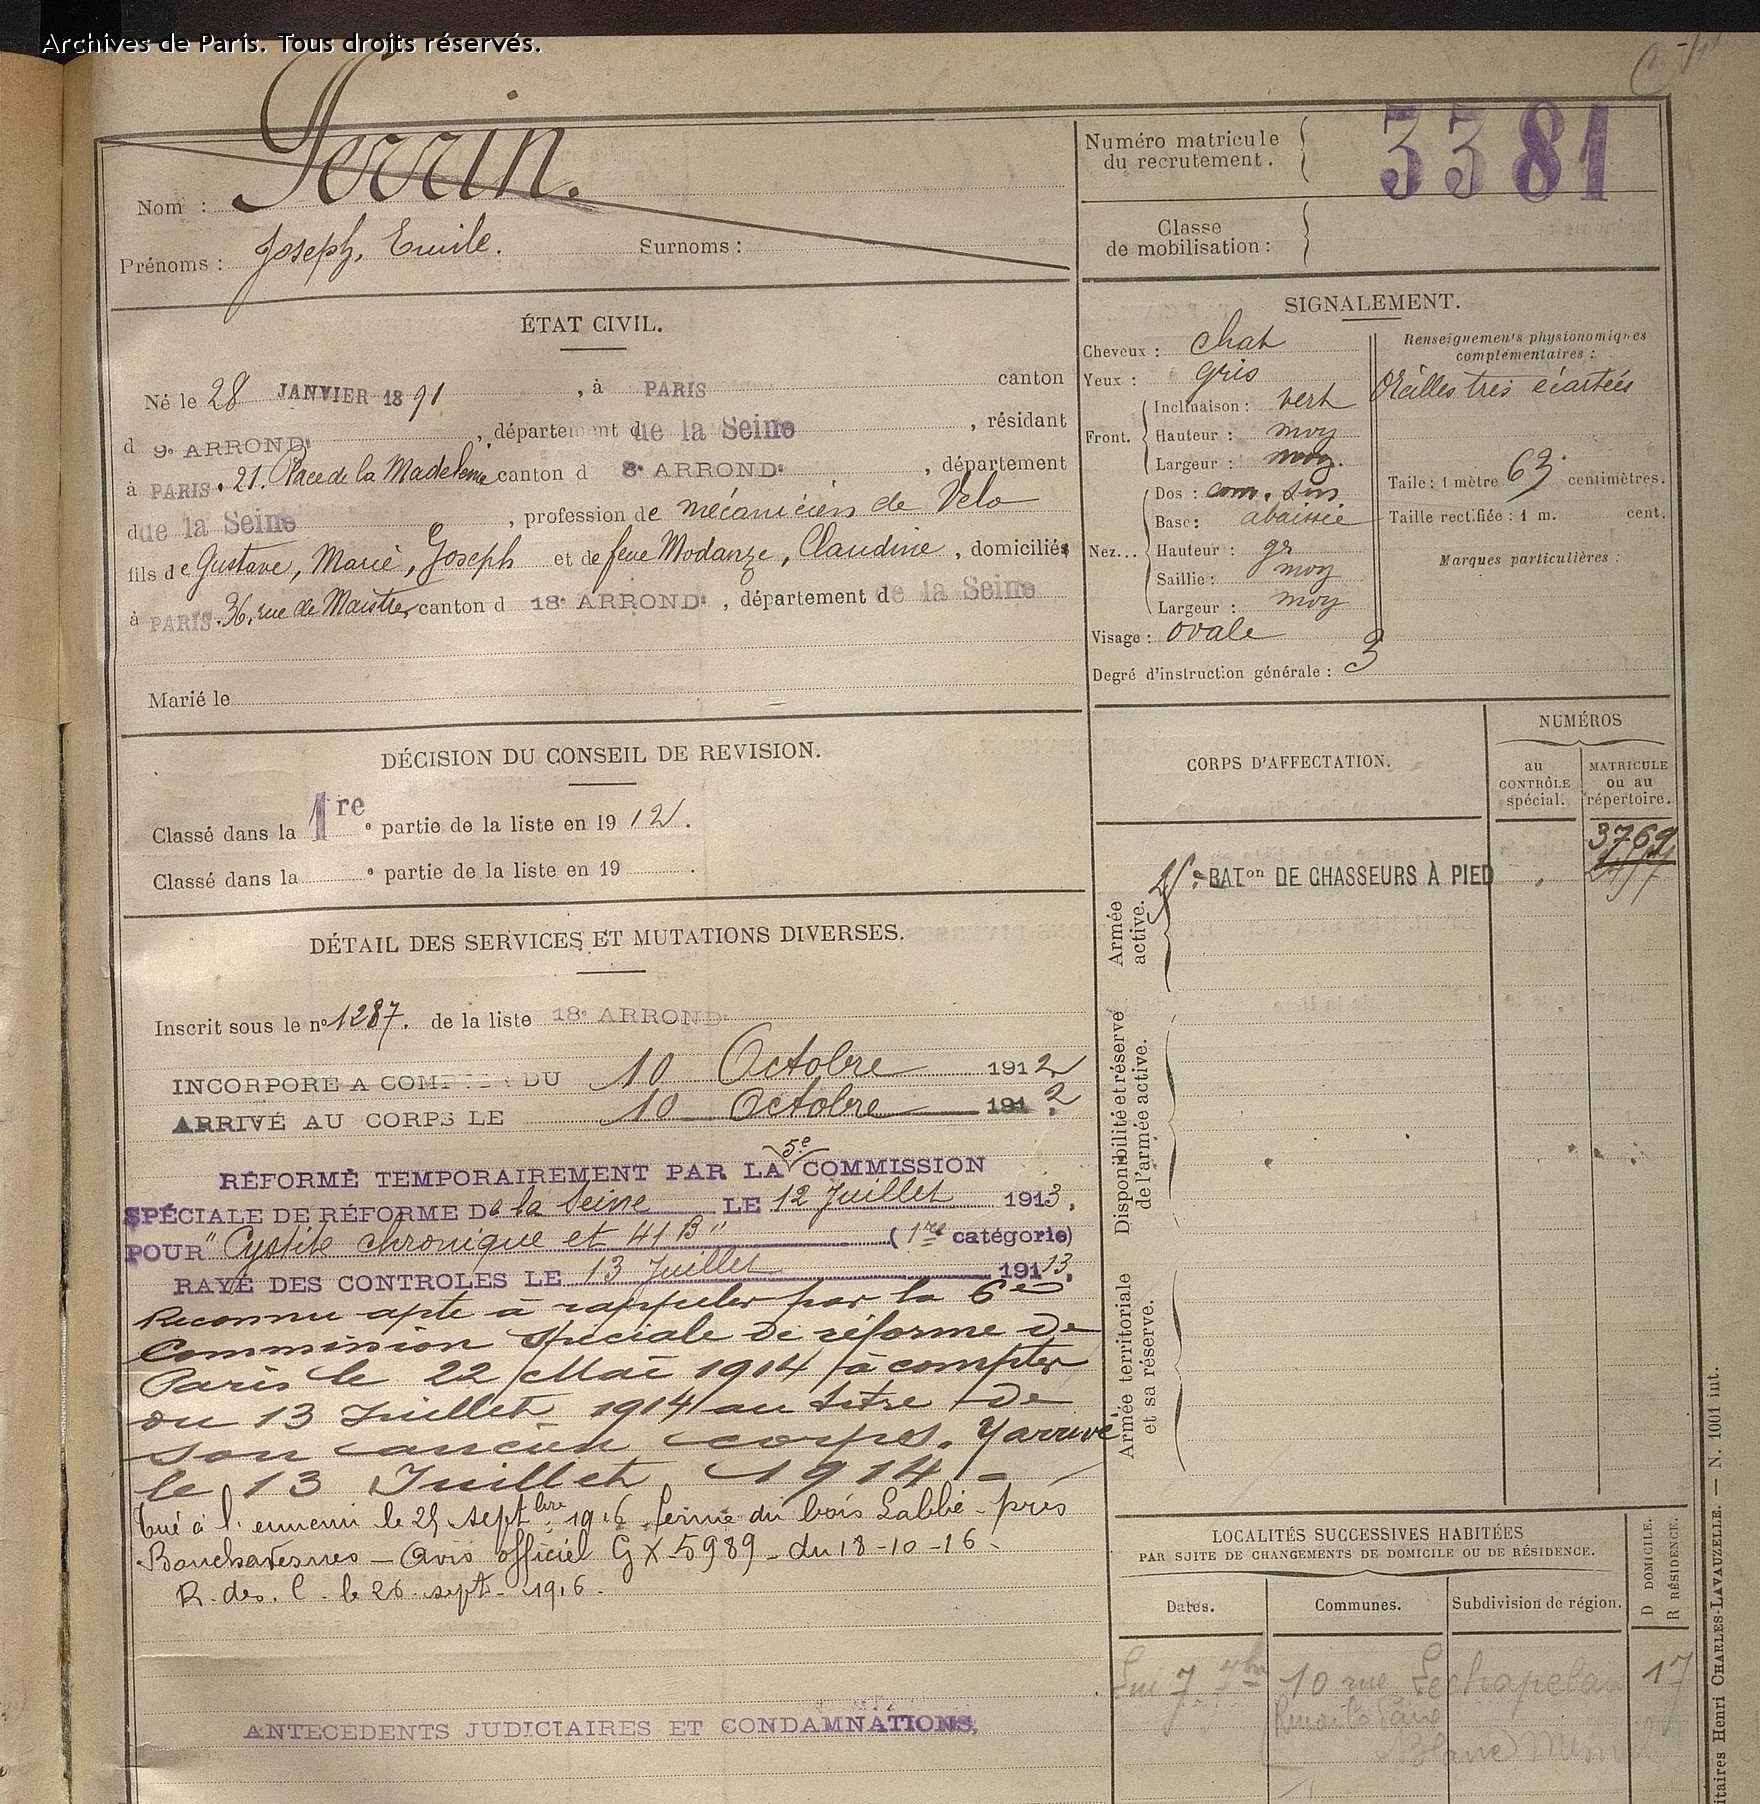 Archives de Paris. Tous droits réservés.
Perrin.
Nom :
Prénoms : Joseph, Emile. Surnoms :
Numéro matricule
du recrutement.
3381
Classe
de mobilisation :
ÉTAT CIVIL.
Né le 28 JANVIER 1891, à PARIS canton
d 9e ARRONDt, département de la Seine, résidant
à PARIS. 21. Place de la Madeleine canton d 8e ARRONDt, département
de la Seine, profession de mécanicien de Velo
fils de Gustave, Marie, Joseph et de feue Modanze, Claudine, domiciliés
à PARIS. 36, rue de Maistre, canton d 18e ARRONDt, département de la Seine
Marié le
SIGNALEMENT.
Cheveux : chat
Yeux : gris
Front. Inclinaison : vert
Hauteur : moy
Largeur : moy.
Nez... Dos : com. sin
Base : abaissée
Hauteur : gr
Saillie : moy
Largeur : moy
Visage : ovale
Degré d'instruction générale : 3
Renseignements physionomiques
complémentaires :
Oreilles très écartées
Taille : 1 mètre 63 centimètres.
Taille rectifiée : 1 m. cent.
Marques particulières :
DÉCISION DU CONSEIL DE REVISION.
Classé dans la 1re e partie de la liste en 1912.
Classé dans la e partie de la liste en 19 .
DÉTAIL DES SERVICES ET MUTATIONS DIVERSES.
Inscrit sous le no 1287. de la liste 18e ARRONDt
INCORPORÉ A COMPTER DU 10 Octobre 1912
ARRIVÉ AU CORPS LE 10 Octobre 1912.
5e
RÉFORMÉ TEMPORAIREMENT PAR LA COMMISSION
SPÉCIALE DE RÉFORME De la Seine LE 12 Juillet 1913.
POUR "Cystite chronique et 41 B" (1re catégorie)
RAYÉ DES CONTROLES LE 13 Juillet 1913.
Reconnu apte à rappeler par la 6e
Commission Spéciale de réforme de
Paris le 22 Mai 1914 à compter
du 13 Juillet 1914 au titre de
son ancien corps. Y arrivé
le 13 Juillet 1914 -
Tué à l'ennemi le 25 septbre 1916 ferme du bois Labbé - près
Bouchavesnes - Avis officiel G X 5989 - du 18-10-16 -
R. des. C. le 26 sept. 1916.
ANTÉCÉDENTS JUDICIAIRES ET CONDAMNATIONS.
CORPS D'AFFECTATION.
NUMÉROS
au
CONTRÔLE
spécial.
MATRICULE
ou au
répertoire.
3769
e BATon DE CHASSEURS A PIED
Armée
active.
Disponibilité et réserve
de l'armée active.
Armée territoriale
et sa réserve.
LOCALITÉS SUCCESSIVES HABITÉES
PAR SUITE DE CHANGEMENTS DE DOMICILE OU DE RÉSIDENCE.
Dates. Communes. Subdivision de région.
D DOMICILE.
R RÉSIDENCE.
7 7bre 10 rue Lechapelais 17
Blanc Mesnil
itaires Henri CHARLES-LAVAUZELLE. — N. 1001 int.